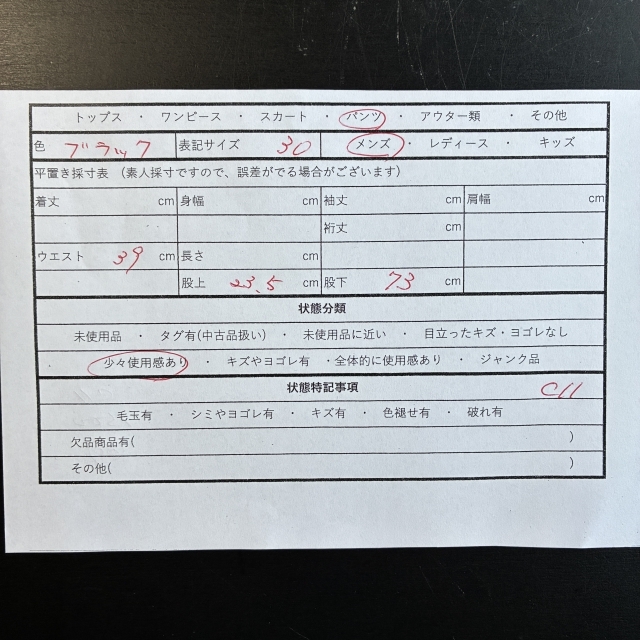 トップス ・ ワンピース ・ スカート ・ パンツ ・ アウター類 ・ その他
色 ブラック 表記サイズ 30 メンズ ・ レディース ・ キッズ
平置き採寸表 (素人採寸ですので、誤差がでる場合がございます)
着丈 cm 身幅 cm 袖丈 cm 肩幅 cm
裄丈 cm
ウエスト 39 cm 長さ cm
股上 23.5 cm 股下 73 cm
状態分類
未使用品 ・ タグ有(中古品扱い) ・ 未使用品に近い ・ 目立ったキズ・ヨゴレなし
少々使用感あり ・ キズやヨゴレ有 ・全体的に使用感あり ・ ジャンク品
状態特記事項 C11
毛玉有 ・ シミやヨゴレ有 ・ キズ有 ・ 色褪せ有 ・ 破れ有
欠品商品有( )
その他( )